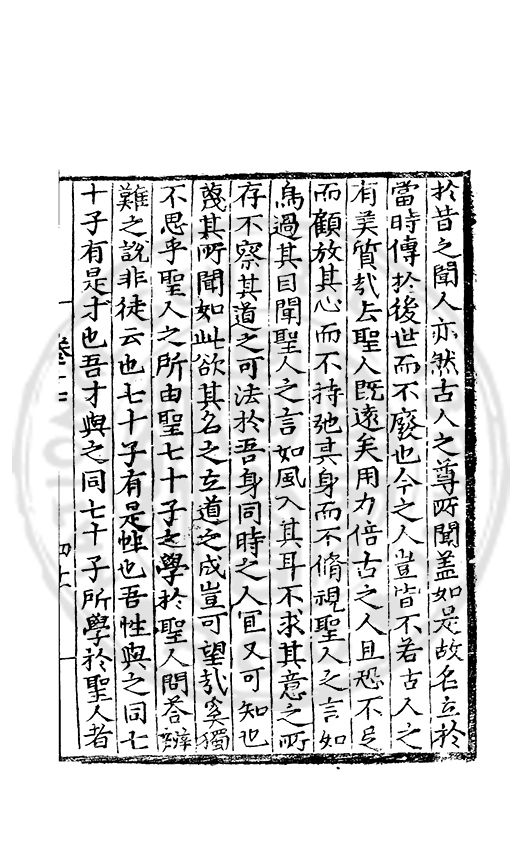 於昔之聞人亦然古人之尊所聞盖如是故名立於
當時傳於後世而不廢也今之人豈皆不若古人之
有美質哉去聖人既遠矣用力倍古之人且恐不足
而顧放其心而不持弛其身而不脩視聖人之言如
鳥過其目聞聖人之言如風入其耳不求其意之所
存不察其道之可法於吾身同時之人宜又可知也
蔑其所聞如此欲其名之立道之成豈可望哉奚獨
不思乎聖人之所由聖七十子之學於聖人問荅辨
難之說非徒云也七十子有是性也吾性與之同七
十子有是才也吾才與之同七十子所學於聖人者